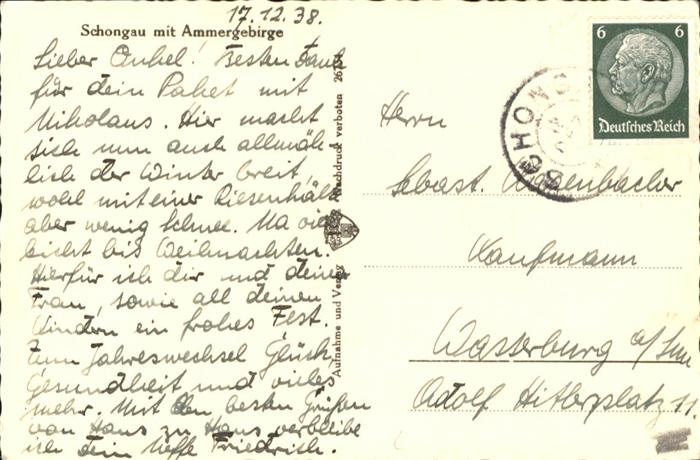 17.12.38.
Schongau mit Ammergebirge
Lieber Onkel! Besten Dank
für dein Paket mit
Nikolaus. Hier macht
sich nun auch allmäh-
lich der Winter breit,
wohl mit einer Riesenkälte
aber wenig Schnee. Na viel
leicht bis Weihnachten.
Hierfür ich dir und deiner
Frau, sowie all deinen
Kindern ein frohes Fest.
Zum Jahreswechsel Glück,
Gesundheit und vieles
mehr. Mit den besten Grüßen
von Haus zu Haus verbleibe
ich dein Neffe Friedrich.
Aufnahme und Verlag
Nachdruck verboten
6 6
Deutsches Reich
SCHONG
Herrn
Sebast.
Kaufmann
Wasserburg a/Inn
Adolf Hitlerplatz 11.